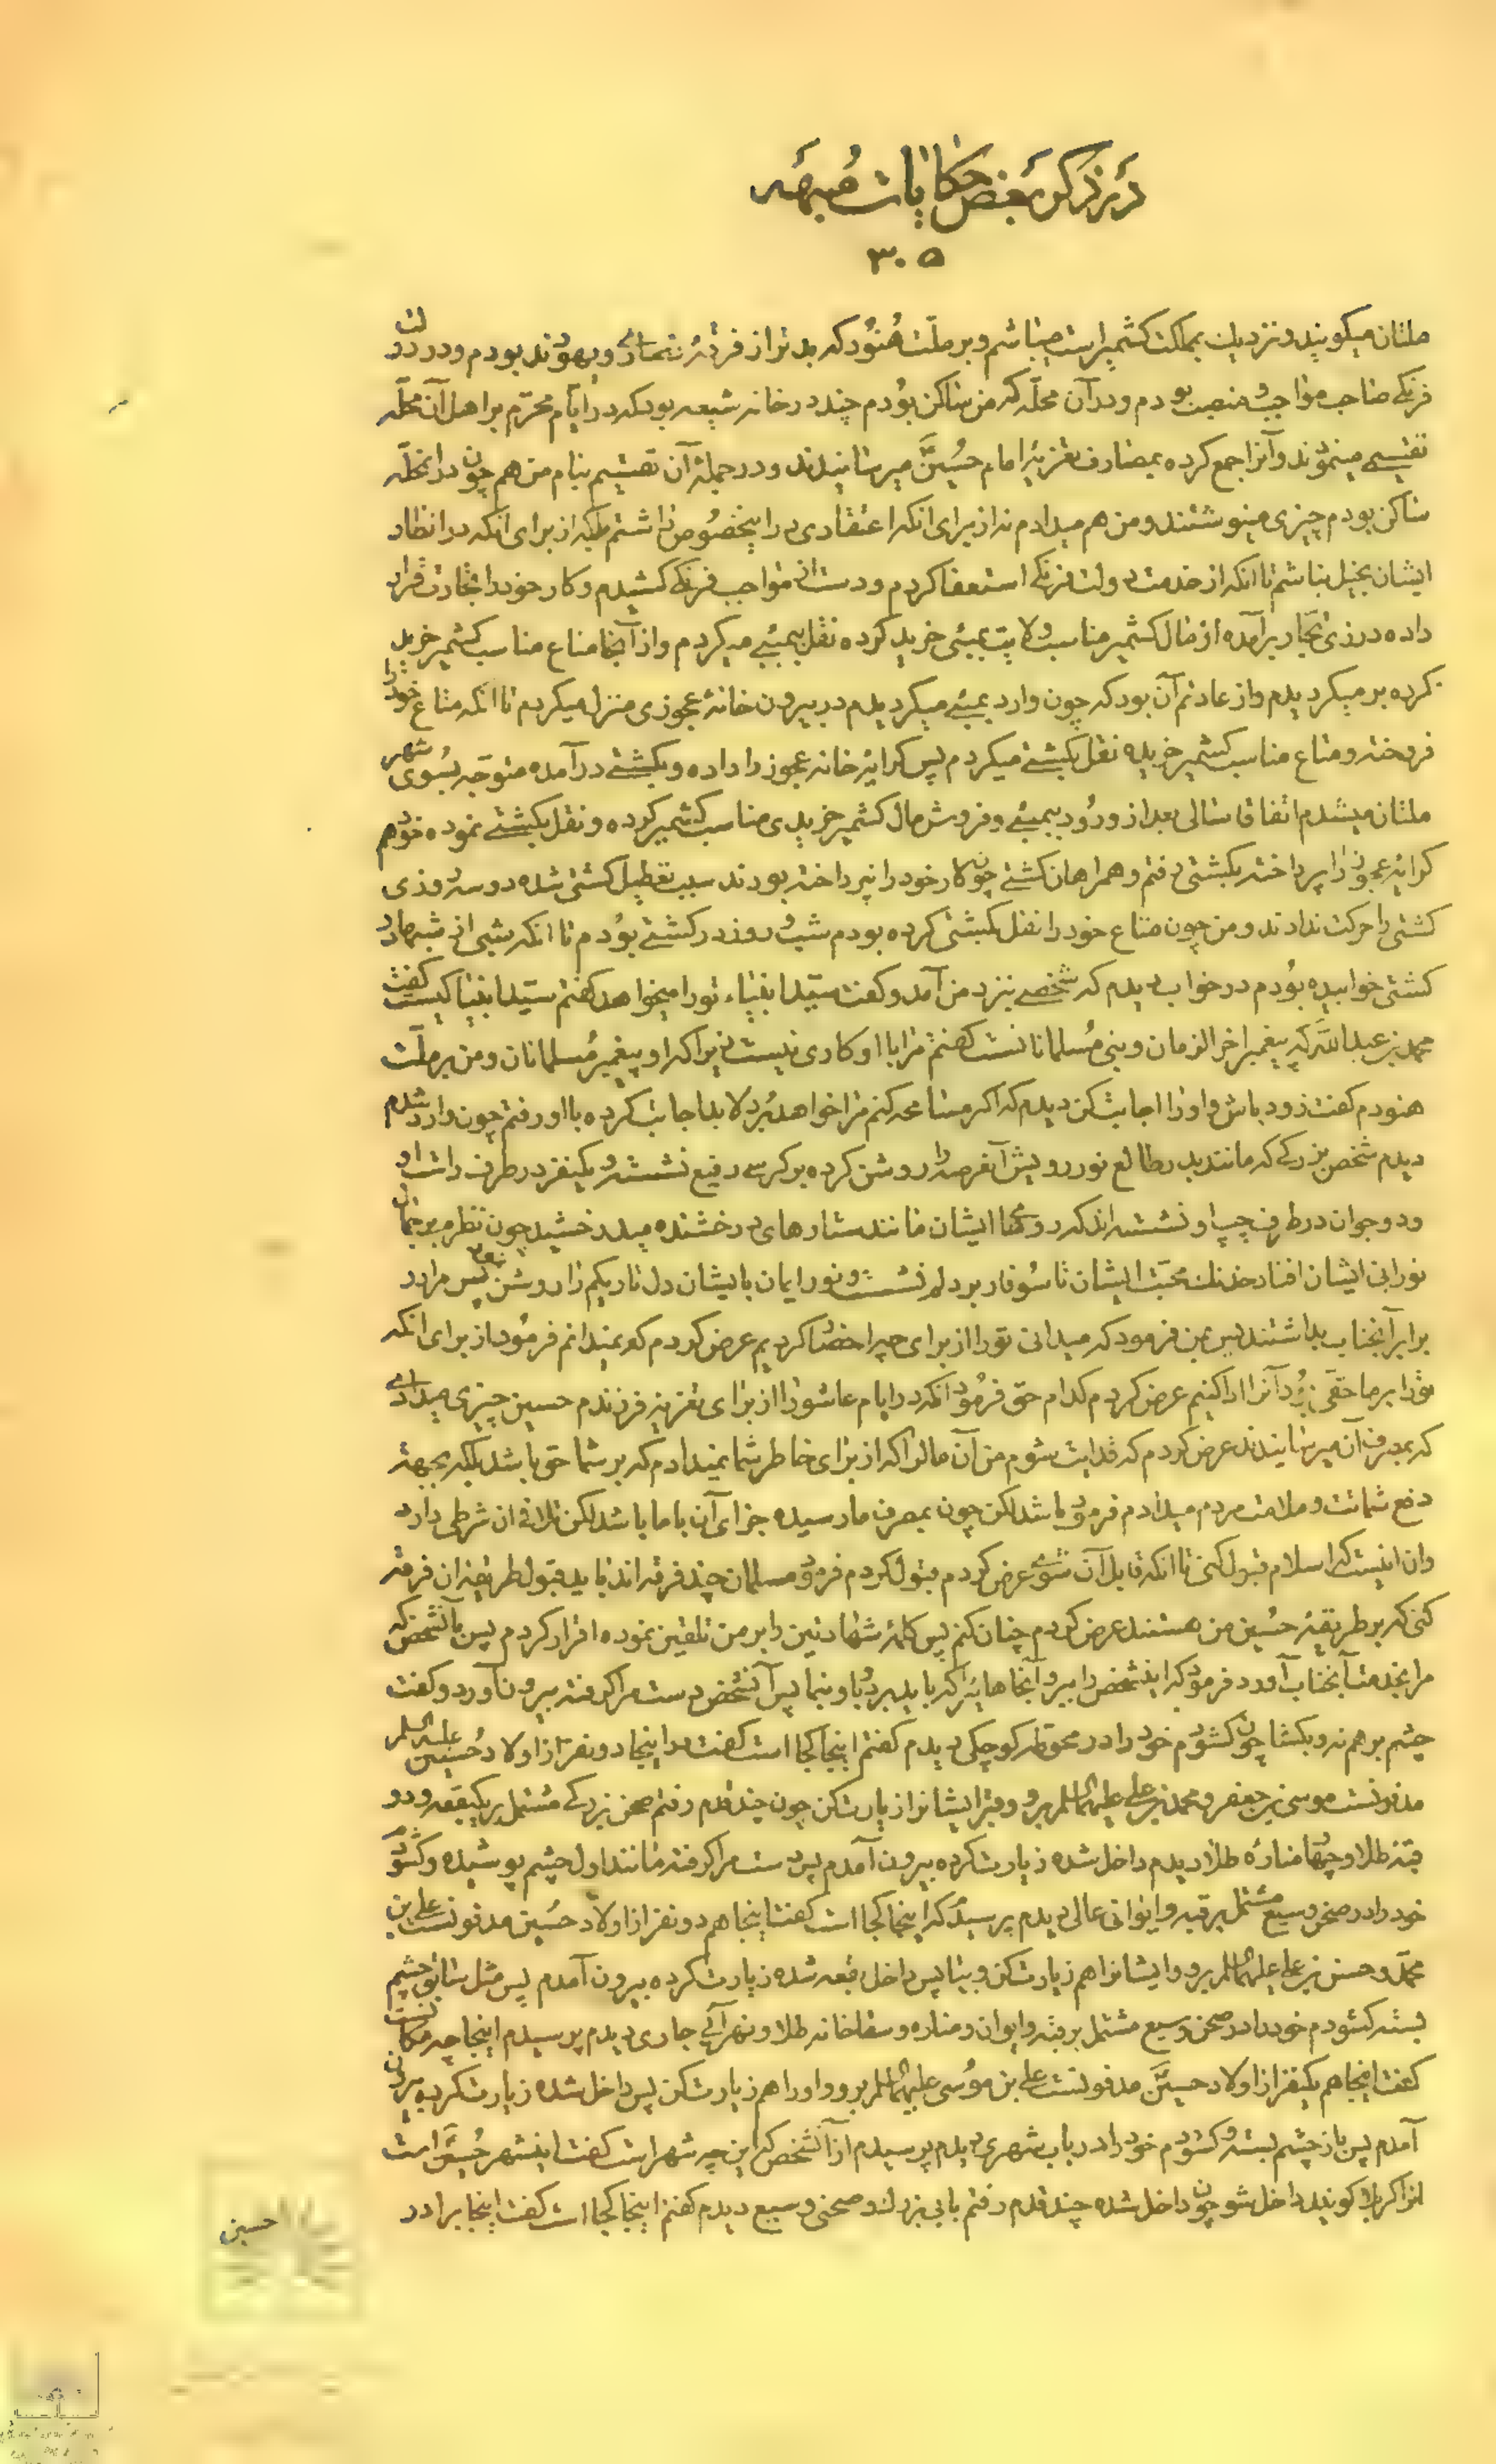 در ذکر بعض حکایات مبهمه
۳۰۵
ملتان میکویند و نزدیک بمملکت کشمیر است میباشم و بر ملّت هُنُود که بدتر از فرقهٔ نصاری و یهودند بودم و در دولت
فرنکی صاحب مواجب و منصب بودم و در آن محلّه که من ساکن بودم چند در خانه شیعه بود که در ایّام محرّم بر اهل آن محلّه
تقسیمی مینمودند و آنرا جمع کرده بمصارف تعزیهٔ امام حُسَین میرسانیدند و در جملهٔ آن تقسیم بنام من هم چون در آنمحلّه
ساکن بودم چیزی مینوشتند و من هم میدادم نه از برای آنکه اعتقادی در اینخصُوص داشتم بلکه از برای آنکه در انظار
ایشان بخیل نباشم تا آنکه از خدمت دولت فرنکی استعفا کردم و دست از مواجب فرنکی کشیدم و کار خود را تجارت قرار
داده در زیّ تجّار برآمده از مال کشمیر مناسب ولایت بمبئی خرید کرده نقل ببمبئی میکردم و از آنجا متاع مناسب کشمیر خرید
کرده بر میکردیدم و از عادتم آن بود که چون وارد بمبئی میکردیدم در بیرون خانهٔ عجوزی منزل میکردم تا آنکه متاع خود را
فروخته و متاع مناسب کشمیر خریده نقل بکشتی میکردم پس کرایهٔ خانه عجوز را داده و بکشتی در آمده متوجّه بسُوی شهر
ملتان میشدم اتّفاقا سالی بعد از ورُود ببمبئی و فروش مال کشمیر خریدی مناسب کشمیر کرده و نقل بکشتی نموده خود هم
کرایهٔ عجوز را پرداخته بکشتی رفتم و همراهان کشتی چون کار خود را نپرداخته بودند سبب تعطیل کشتی شده دو سه روزی
کشتی را حرکت ندادند و من چون متاع خود را نقل بکشتی کرده بودم شب و روز در کشتی بودم تا آنکه شبی از شبها در
کشتی خوابیده بُودم در خواب دیدم که شخصی بنزد من آمد و کفت سیّد انبیاء تو را میخواهد کفتم سیّد انبیا کیست کفت
محمد بن عبد الله که پیغمبر اخر الزمان و نبی مُسلمانانست کفتم مرا با او کاری نیست زیرا که او پیغمبر مُسلمانان و من بر ملّت
هنودم کفت زود باش و او را اجابت کن دیدم که اکر مسامحه کنم مرا خواهد بُرد لابد اجابت کرده با او رفتم چون وارد شدم
دیدم شخص بزرکی که مانند بدر طالع نور رویش آنعرصه را روشن کرده بر کرسی رفیع نشسته و یکنفر در طرف راست او
و دو جوان در طرف چپ او نشسته اند که رویها ایشان مانند ستارهای درخشنده میدرخشید چون نظرم بر جمال
نورانی ایشان افتاد خدنک محبّت ایشان تا سُوفار بر دلم نشست و نور ایمان بایشان دل تاریکم را روشن نمود پس مرا در
برابر آنجناب بداشتند پس بمن فرمود که میدانی تو را از برای چه احضار کردیم عرض کردم که نمیدانم فرمُود از برای آنکه
تو را بر ما حقّی بُود آنرا ادا کنیم عرض کردم کدام حق فرمُود آنکه در ایام عاشورا از برای تعزیهٔ فرزندم حسین چیزی میدادی
که بمصرف آن میرسانیدند عرض کردم که فدایت شوم من آن مال را که از برای خاطر شما نمیدادم که بر شما حق باشد بلکه بجهة
دفع شماتت و ملامت مردم میدادم فرمود باشد لکن چون بمصرف ما رسیده جزای آن با ما باشد لکن تلافی آن شرطی دارد
و ان اینست که اسلام قبول کنی تا آنکه قابل آن شوی عرض کردم قبول کردم فرمود مسلمان چند فرقه اند باید قبول طریقهٔ آن فرقه
کنی که بر طریقهٔ حُسین من هستند عرض کردم چنان کنم پس کلمهٔ شهادتین را بر من تلقین نموده اقرار کردم پس بآنشخص که
مرا بخدمت آنجناب آورد فرمود که اینشخص را ببر و آنجاهائیرا که باید ببرد باو بنما پس آنشخص دست مرا کرفته بیرون آورد و کفت
چشم بر هم نه و بکشا چون کشودم خود را در محوطهٔ کوچکی دیدم کفتم اینجا کجا است کفت در اینجا دو نفر از اولاد حُسین علیه السلام
مدفونست موسی بن جعفر و محمد بن علی علیهما السلام برو و قبر ایشانرا زیارت کن چون چند قدم رفتم صحن بزرکی مُشتمل بر یکبقعه و دو
قبّهٔ طلا و چهار منارهٔ طلا دیدم داخل شده زیارت کرده بیرون آمدم پس دست مرا کرفته مانند اول چشم پوشیده و کشودم
خود را در صحن وسیع مشتمل بر قبّه و ایوانی عالی دیدم پرسیدم که اینجا کجا است کفت اینجا هم دو نفر از اولاد حُسین مدفونست علی بن
محمّد و حسن بن علی علیهما السلام برو و ایشانرا هم زیارت کن و بیا پس داخل بقعه شده زیارت کرده بیرون آمدم پس مثل سابق چشم
بسته کشودم خود را در صحن وسیع مشتمل بر قبّه و ایوان و مناره و سقاخانه طلا و نهر آبی جاری دیدم پرسیدم اینجا چه مکانست
کفت اینجا هم یکنفر از اولاد حسین مدفونست علی بن موُسی علیهما السلام برو و او را هم زیارت کن پس داخل شده زیارت کرده بیرون
آمدم پس باز چشم بسته و کشودم خود را در باب شهری دیدم پرسیدم از آنشخص که این چه شهر است کفت اینشهر حُسین است
انرا کربلا کویند داخل شو چون داخل شده چند قدم رفتم بابی بزرک و صحنی وسیع دیدم کفتم اینجا کجا است کفت اینجا برادر
حسین